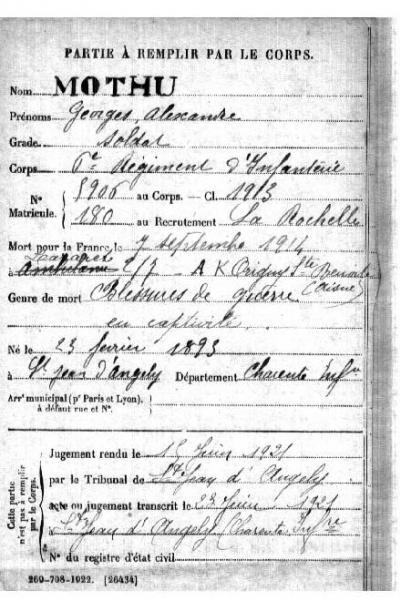 PARTIE À REMPLIR PAR LE CORPS.
Nom MOTHU
Prénoms Georges, Alexandre
Grade soldat
Corps 6e Régiment d'Infanterie
N° Matricule. { 5906 au Corps. — Cl. 1913
180 au Recrutement La Rochelle
Mort pour la France le 7 septembre 1914
Lazaret
à ambulance 5/7 - A K Origny Ste Benoîte
(Aisne)
Genre de mort Blessures de guerre
en captivité
Né le 23 février 1893
à St Jean d'Angely Département Charente Infre
Arrt municipal (pr Paris et Lyon), à défaut rue et N°. {
Cette partie n'est pas à remplir par le Corps.
Jugement rendu le 15 Juin 1921
par le Tribunal de St Jean d'Angely
acte ou jugement transcrit le 23 Juin 1921
St Jean d'Angely (Charente Infre
N° du registre d'état civil
269-708-1922. [26434]